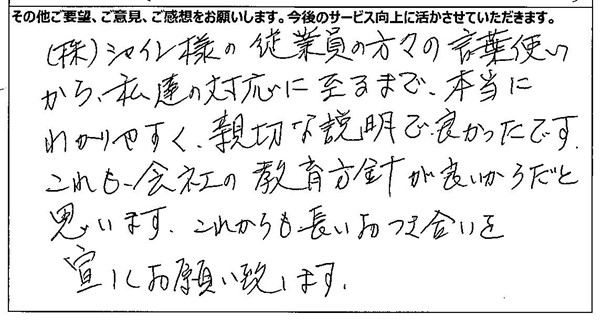 その他ご要望、ご意見、ご感想をお願いします。今後のサービス向上に活かさせていただきます。
(株)シャイン様の従業員の方々の言葉使い
から、私達の対応に至るまで、本当に
わかりやすく、親切な説明で良かったです.
これも会社の教育方針が良いからだと
思います. これからも長いおつき合いを
宜しくお願い致します.